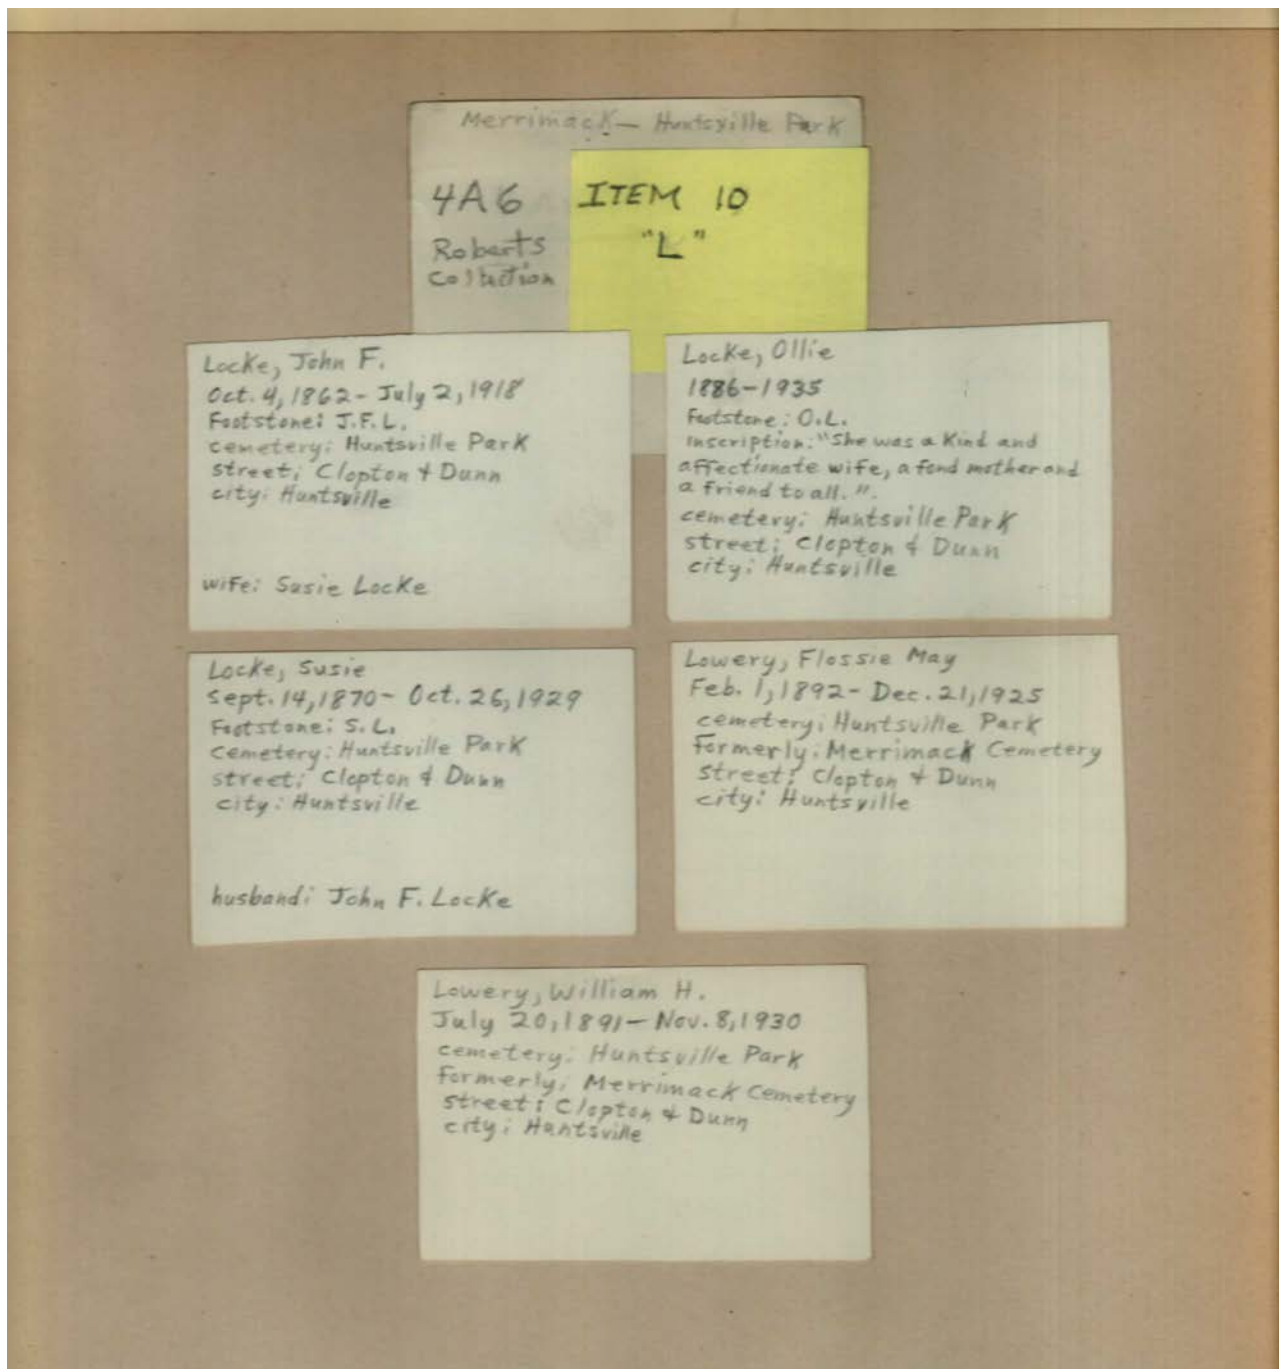 Merrimack - Huntsville Park
4A6
Roberts
Collection
ITEM 10
"L"
Locke, John F.
Oct. 4, 1862 - July 2, 1918
Footstone: J.F.L.
cemetery: Huntsville Park
street: Clopton & Dunn
city: Huntsville
wife: Susie Locke
Locke, Ollie
1886-1935
Footstone: O.L.
inscription: "She was a Kind and
affectionate wife, a fond mother and
a friend to all.".
cemetery: Huntsville Park
street: Clopton & Dunn
city: Huntsville
Locke, Susie
Sept. 14, 1870 - Oct. 26, 1929
Footstone: S.L.
cemetery: Huntsville Park
street: Clopton & Dunn
city: Huntsville
husband: John F. Locke
Lowery, Flossie May
Feb. 1, 1892 - Dec. 21, 1925
cemetery: Huntsville Park
Formerly: Merrimack Cemetery
street: Clopton & Dunn
city: Huntsville
Lowery, William H.
July 20, 1891 - Nov. 8, 1930
cemetery: Huntsville Park
Formerly: Merrimack Cemetery
street: Clopton & Dunn
city: Huntsville